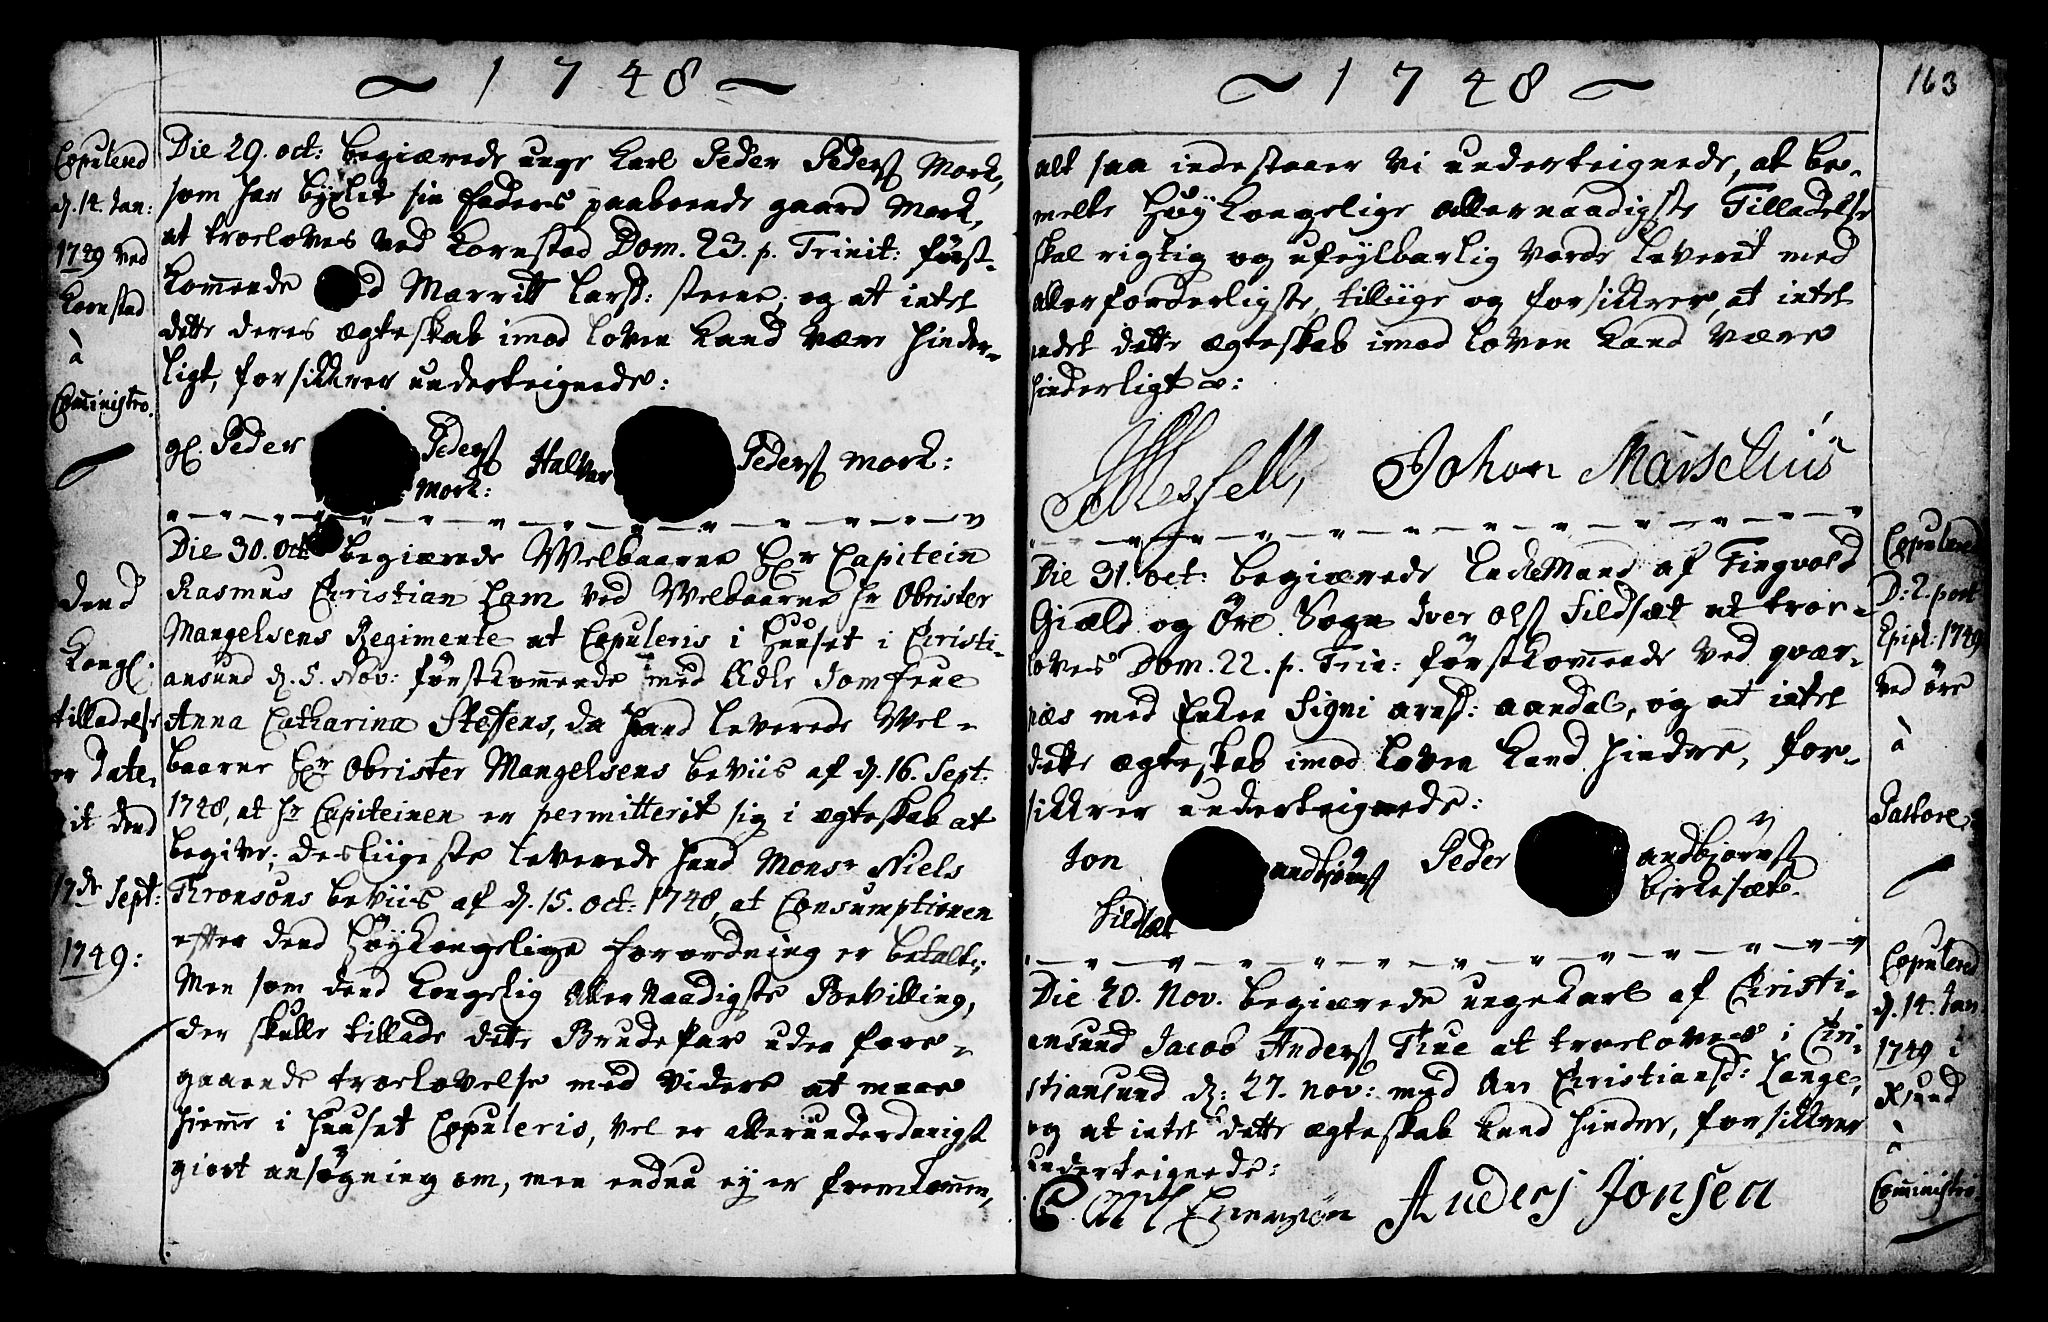 ~ 1748 ~
Copulered
d. 14. Jan:
1749 ved
Kornstad
à
Comministro.
Die 29. oct: begiærede unge Karl Peder Peders Mork,
som har bÿxlit sin faders paaboende gaard Mork,
at troeloves ved Kornstad Dom. 23. p. Trinit: först-
kommende med Marritt Larsd: steene; og at intet
dette deres ægteskab imod loven kand være hinder-
ligt, forsikkrer underteignede:
gl. Peder Peders Mork: Halvor Peders Mork:
dend
Kongl:
tilladelse
er date-
rit dend
17de Sept:
1749:
Die 30. Oct: begiærede Welbaarne Hr Capitein
Rasmus Christian Ham ved Welbaarne Hr Obrister
Mangelsens Regimente at Copuleris i Huuset i Christi-
ansund d. 5. Nov: förstkommende med Ædle Jomfrue
Anna Catharina Steffens, da hand leverede Wel-
baarne Hr Obrister Mangelsens beviis af d. 16. Sept:
1748, at Hr Capiteinen er permitterit sig i ægteskab at
begive; desliigeste leverede hand Monsr Niels
Thronsøns beviis af d. 15. oct: 1748, at Consumptionen
efter dend Höykongelige forordning er betalt;
Men som dend Kongelig Aller Naadigste Bevilling,
der skulle tillade dette Brudepar uden fore-
gaaende troelovelse med videre at maae
hiemme i Huuset Copuleris, vel er allerunderdanigst
giort ansögning om, men endnu ey er fremkommen,
~ 1748 ~
163
alt saa indestaaer vi underteignede, at be-
melte Höykongelige allernaadigste Tilladelse
skal rigtig og ufeylbarlig vorde leveret med
allerforderligste, tilliige og forsikkrer, at intet
andet dette ægteskab imod loven kand være
hinderligt:
Johan Marselius
Copulered
D: 2. post
Epiph: 1749
ved öre
à
Pastore.
Die 31. oct: begiærede EnckeMand af Tingvold
Giæld og Öre Sogn Iver Ols Sildsæt at troe-
loves Dom. 22. p. Trin: förstkommende ved qvær-
næs med Enken Signi Arnsd: Aandal, og at intet
dette ægteskab imod loven kand hindre, for-
sikkrer underteignede:
Jon Andbjörns Sildsæt Peder Andbjörns
Birkesæte.
Copulered
d. 14. Jan
1749 i
Xsund
à
Comministro.
Die 20. Nov. begiærede ungekarl af Christi-
ansund Jacob Anders Tiue at troeloves i Chri-
stiansund d: 27. nov: med An Christiansd: Lange,
og at intet dette ægteskab kand hindre, forsikkrer
underteignede:
Anders Jonsen